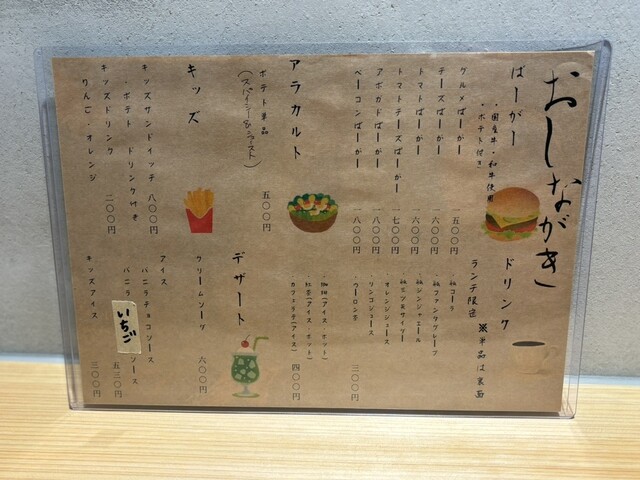 おしながき
ばーがー
・国産牛・和牛使用
・ポテト付き
グルメばーがー 一五〇〇円
チーズばーがー 一六〇〇円
トマトばーがー 一六〇〇円
トマトチーズばーがー 一七〇〇円
アボガドばーがー 一八〇〇円
ベーコンばーがー 一八〇〇円
アラカルト
ポテト単品 五〇〇円
(スパイシー&ニースト)
キッズ
キッズサンドイッチ 八〇〇円
・ポテト ドリンク付き
キッズドリンク 二〇〇円
りんご・オレンジ
ドリンク
ランチ限定 ※単品は裏面
・瓶コーラ
・瓶ファンタグレープ
・瓶ジンジャエール
・瓶三ツ矢サイダー
・オレンジジュース
・リンゴジュース
・ウーロン茶 三〇〇円
・珈琲(アイス・ホット)
・紅茶(アイス・ホット)
カフェラテ(アイス) 四〇〇円
デザート
クリームソーダ 六〇〇円
アイス
バニラチョコソース
バニラ いちご ソース 五三〇円
キッズアイス 三〇〇円